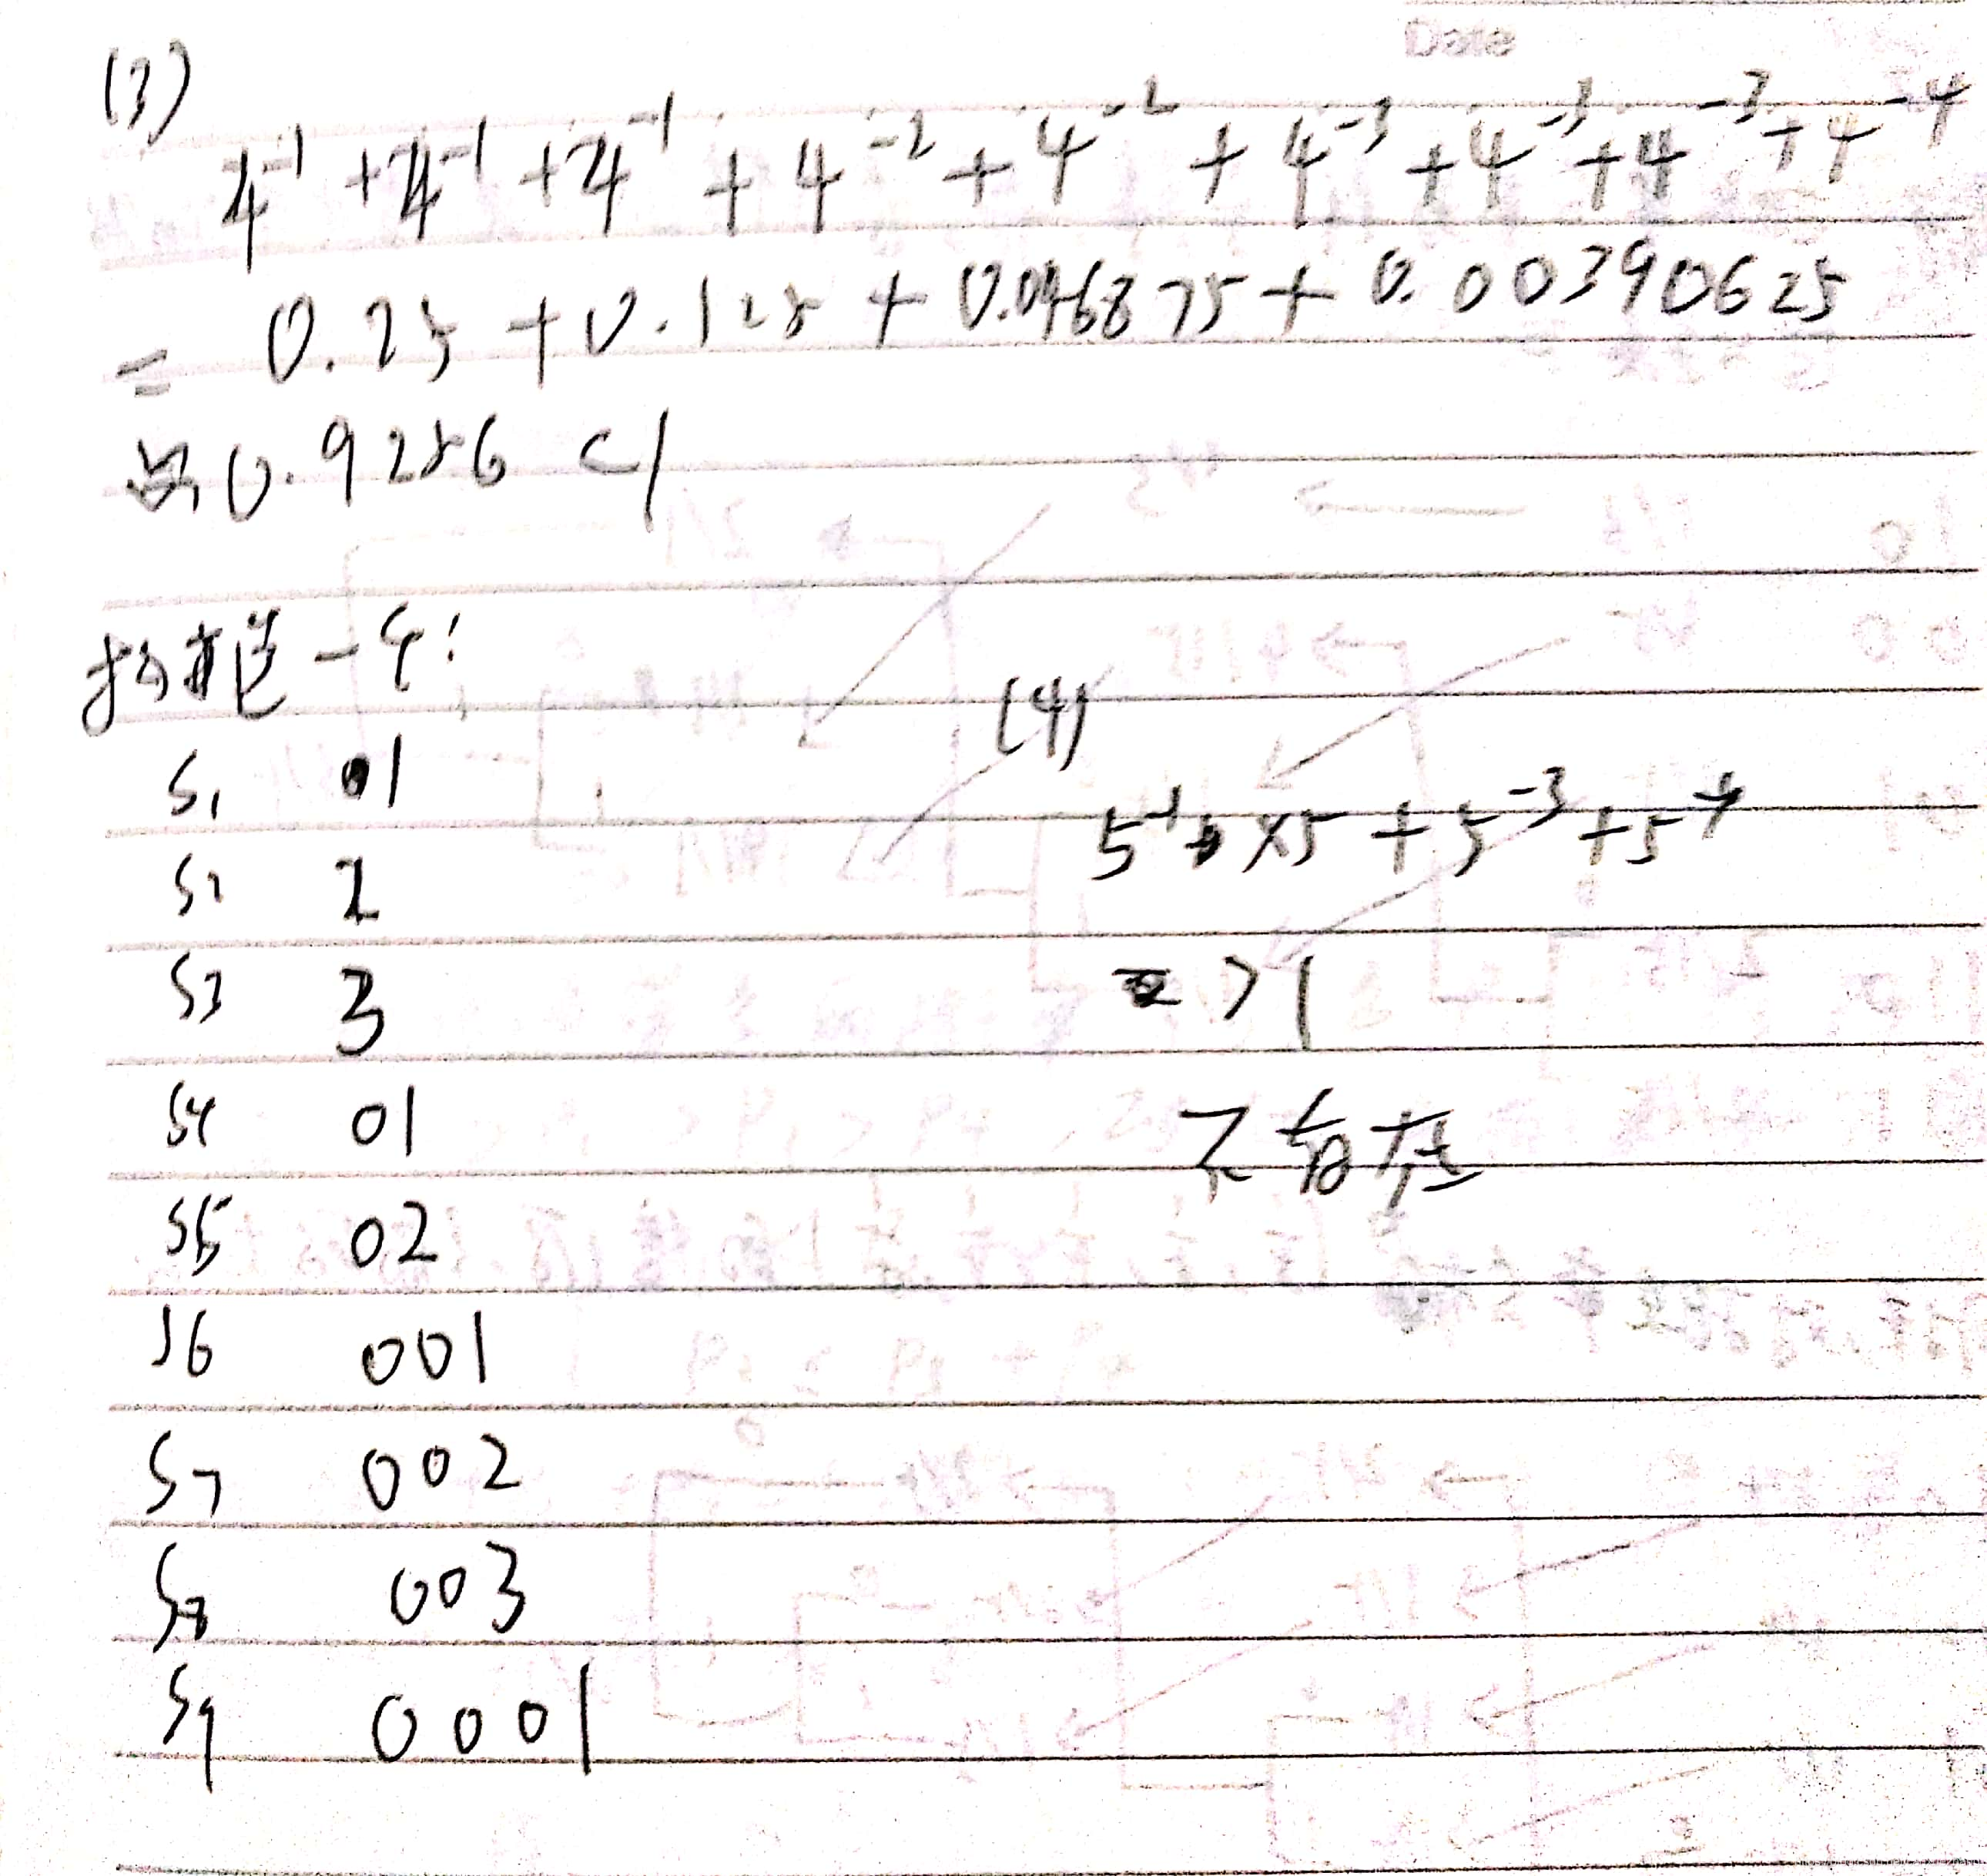 Date
(3)
4⁻¹ + 4⁻¹ + 4⁻¹ + 4⁻² + 4⁻² + 4⁻³ + 4⁻³ + 4⁻³ + 4⁻⁴
= 0.25 + 0.125 + 0.046875 + 0.00390625
≈ 0.9256 < 1
构造一个:
S₁ 01
S₂ 2
S₃ 3
S₄ 01
S₅ 02
S₆ 001
S₇ 002
S₈ 003
S₉ 0001
(4)
5⁻¹ × 5 + 5⁻³ + 5⁻⁴
> 1
不存在